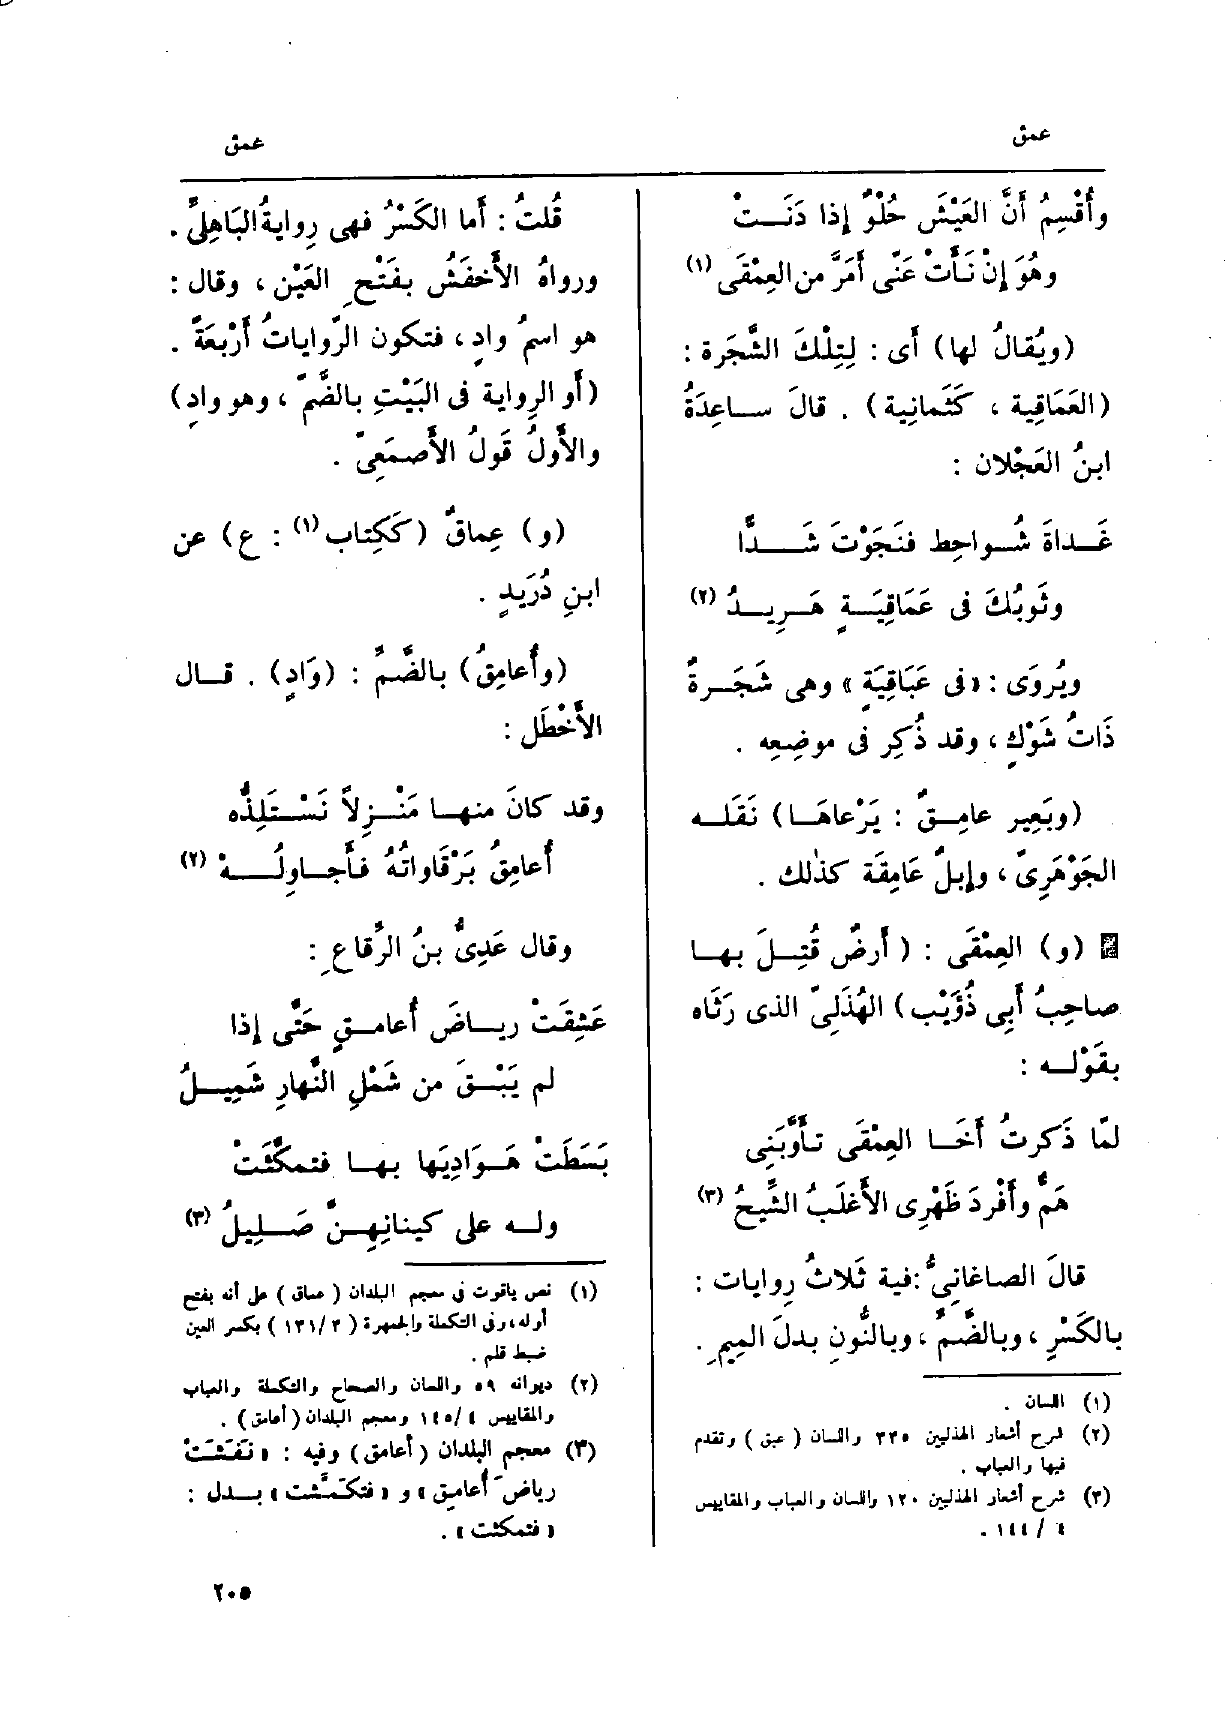 عمق
عمق
وأُقْسِمُ أَنَّ العَيْشَ حُلْوٌ إذا دَنَتْ
وهُوَ إنْ نَأَتْ عَنِّى أَمَرَّ من العِمْقَى (١)
(ويُقالُ لها) أى : لِتِلْكَ الشَّجَرة :
(العَمَاقِية ، كَثَمانية) . قالَ ساعِدَةُ
ابنُ العَجْلان :
غَداةَ شُواحِط فنَجَوْتَ شَدًّا
وثَوبُكَ فى عَمَاقِيَةٍ هَرِيدُ (٢)
ويُروَى : «فى عَبَاقِيَةٍ» وهى شَجَرةٌ
ذَاتُ شَوْكٍ ، وقد ذُكِر فى موضِعِه .
(وبَعِير عامِقٌ : يَرْعاهَا) نَقَله
الجَوْهَرِىّ ، وإبلٌ عَامِقَة كذٰلك .
(و) العِمْقَى : (أَرضٌ قُتِلَ بها
صاحِبُ أَبِى ذُؤَيْب) الهُذَلِىّ الذى رَثَاه
بقَوْله :
لمّا ذَكرتُ أَخَا العِمْقَى تأَوَّبَنِى
هَمٌّ وأَفْردَ ظَهْرِى الأَغلَبُ الشِّيحُ (٣)
قالَ الصاغانِىُّ : فية ثَلاثُ رِوايات :
بالكَسْرِ ، وبالضَّمِّ ، وبالنُّونِ بدلَ المِيمِ .
(١) اللسان .
(٢) شرح أشعار الهذليين ٣٣٥ واللسان (عبق) وتقدم
فيها والعباب .
(٣) شرح أشعار الهذليين ١٢٠ واللسان والعباب والمقاييس
٤ / ١٤٤ .
قُلتُ : أَما الكَسْرُ فهى رِوايةُ البَاهِلِىِّ .
ورواهُ الأَخفَشُ بفَتْحِ العَيْن ، وقال :
هو اسمُ وادٍ ، فتكون الرِّواياتُ أَرْبَعَةً .
(أَو الرِواية فى البَيْتِ بالضَّمّ ، وهو وادٍ)
والأَولُ قَولُ الأَصمَعِىّ .
(و) عِماقٌ (كَكِتاب (١) : ع) عن
ابنِ دُرَيدٍ .
(وأُعامِقُ) بالضَّمِّ : (وَادٍ) . قال
الأَخْطَل :
وقد كانَ منها مَنْزِلاً نَسْتَلِذُّه
أُعامِقُ بَرْقَاواتُهُ فأَجاوِلُهْ (٢)
وقال عَدِىُّ بنُ الرِّقاعِ :
عَشِقَتْ رياضَ أُعامقٍ حَتَّى إذا
لم يَبْقَ من شَمْلِ النَّهارِ شَمِيلُ
بَسَطَتْ هَوَادِيَها بها فتمكَّثَتْ
وله على كيناتِهِنَّ صَلِيلُ (٣)
(١) نص ياقوت فى معجم البلدان (عماق) على أنه بفتح
أوله ، وفى التكملة والجمهرة (٣ /١٣١) بكسر العين
ضبط قلم .
(٢) ديوانه ٥٩ واللسان والصحاح والتكملة والعباب
والمقاييس ٤ / ١٤٥ ومعجم البلدان (أعامق) .
(٣) معجم البلدان (أعامق) وفيه : «نَفَشَتْ
رياضَ أُعامِق» و «فتكمَّشت» بدل :
«فتمكثت» .
٢٠٥